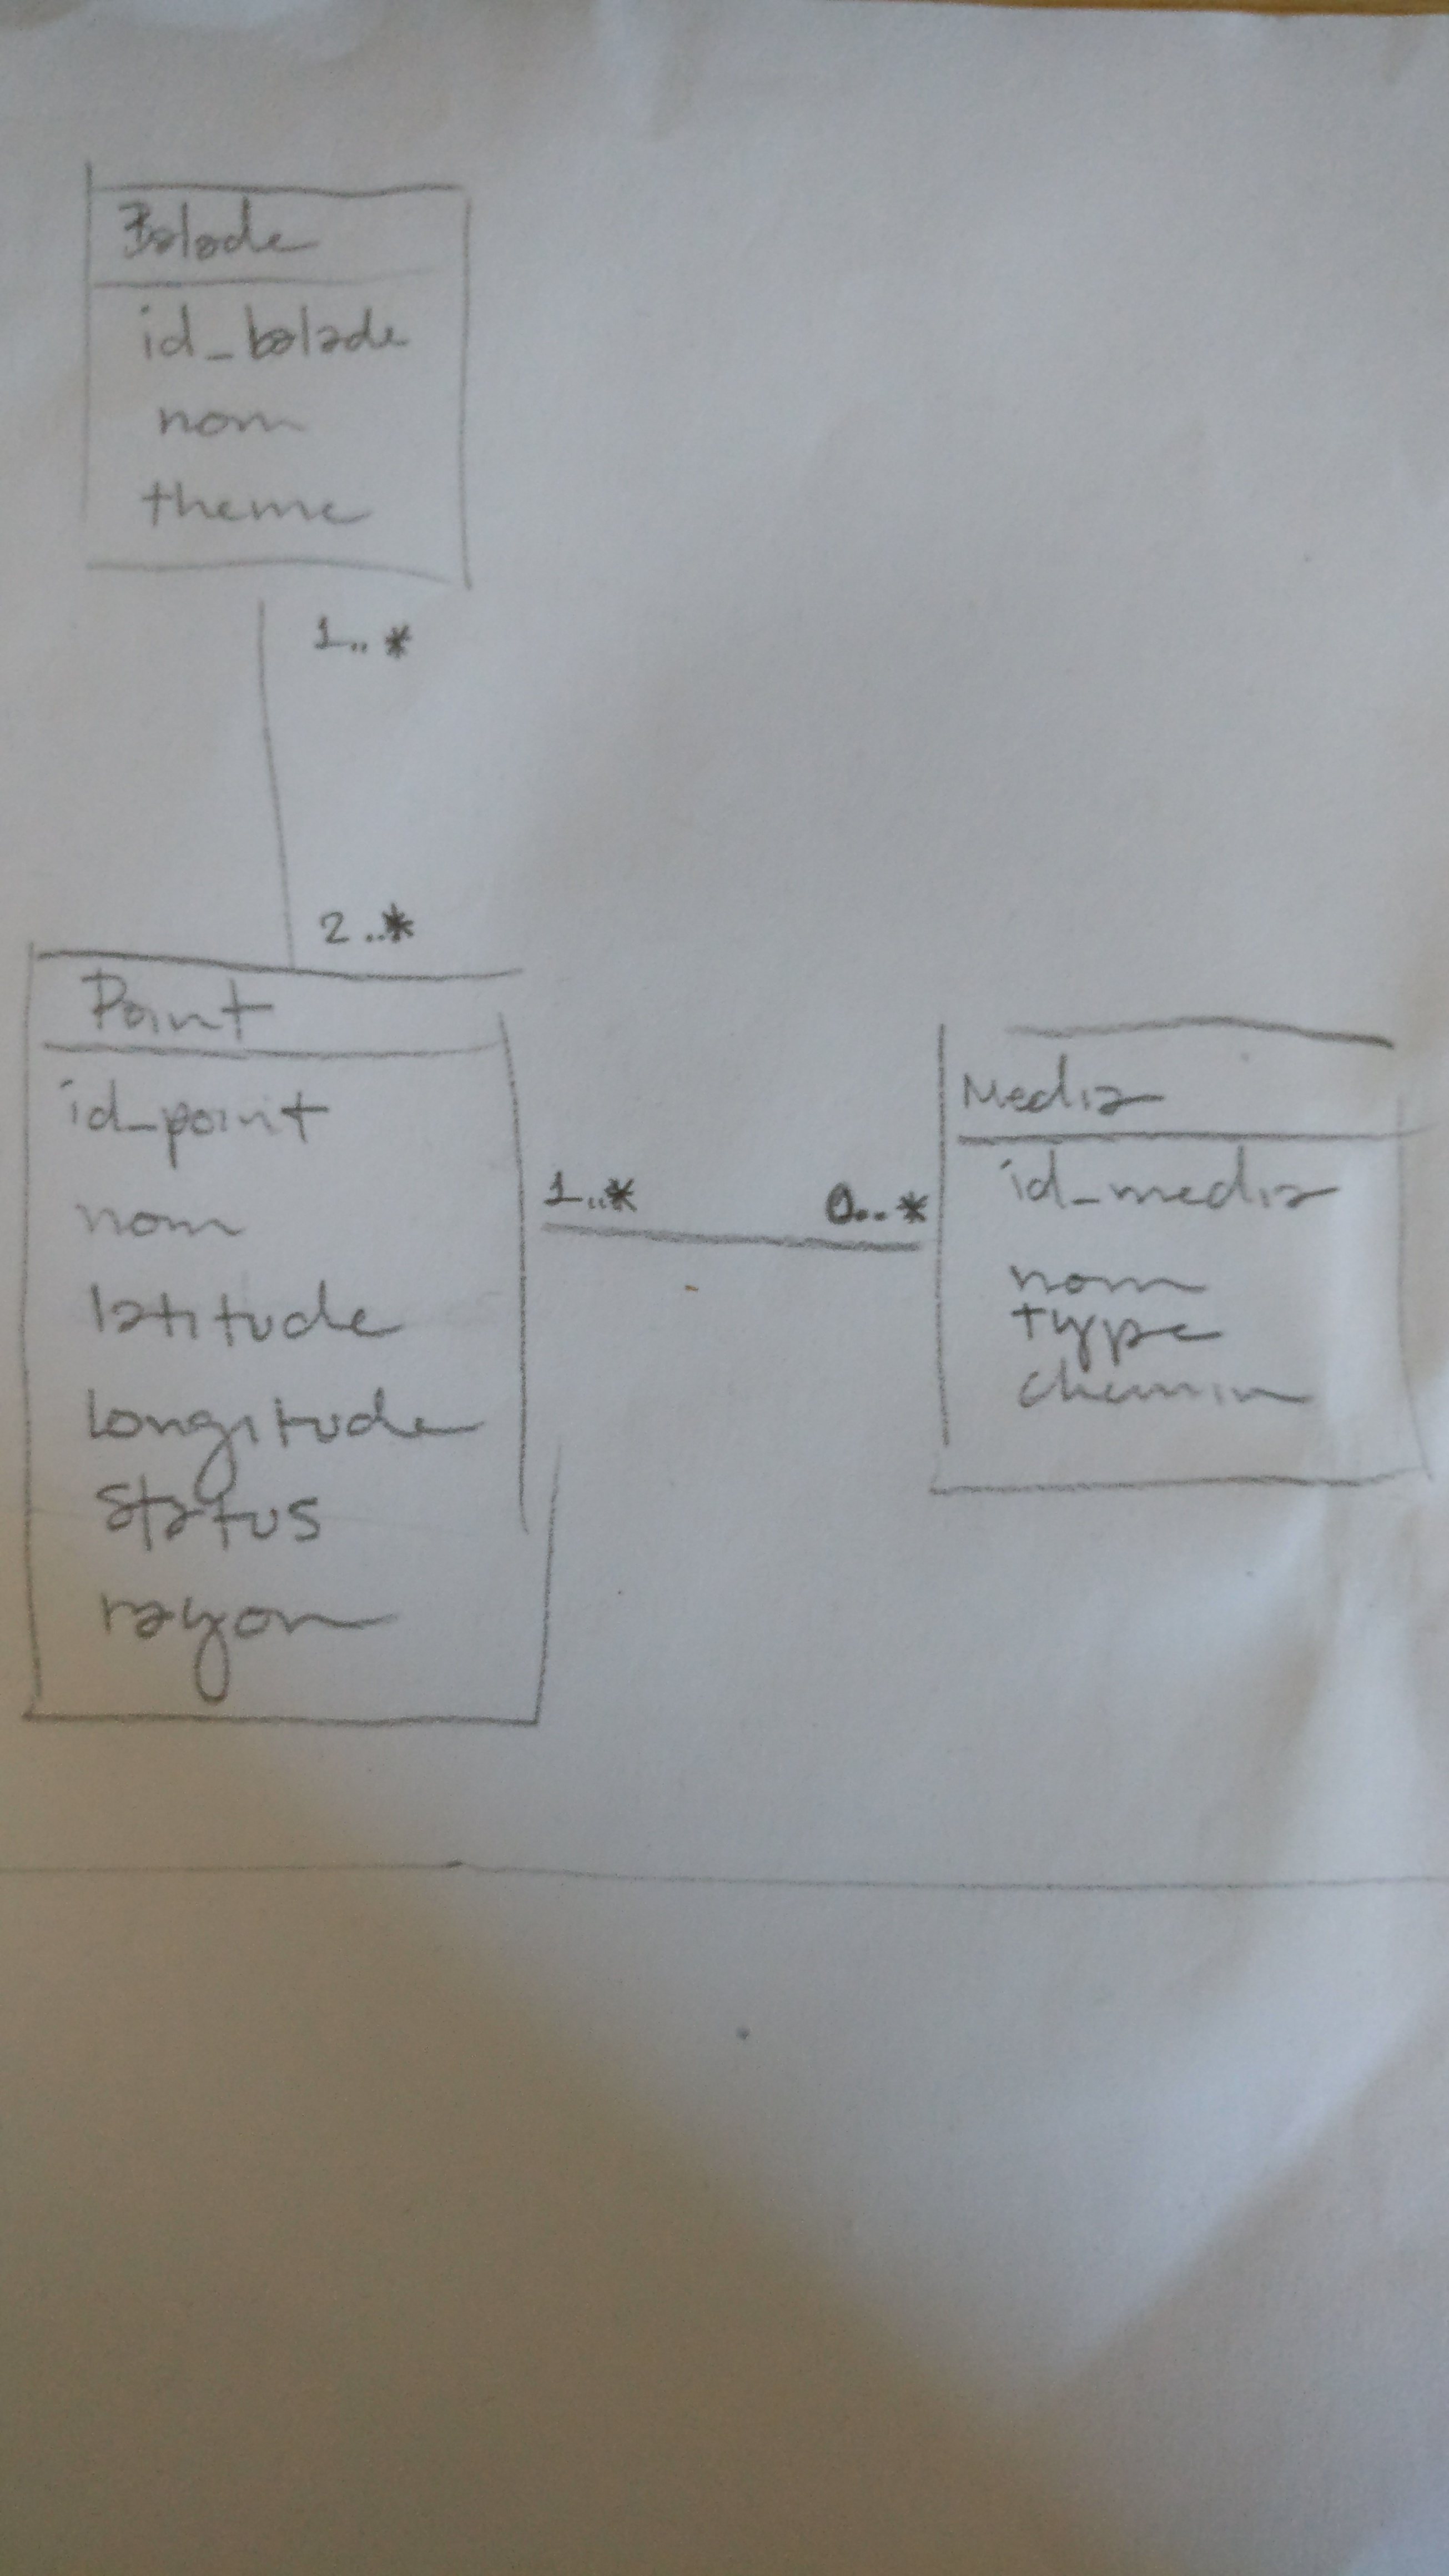 Balade
id_balade
nom
theme
1..*
2..*
Point
id_point
nom
latitude
longitude
status
rayon
1..*
0..*
Media
id_media
nom
type
chemin